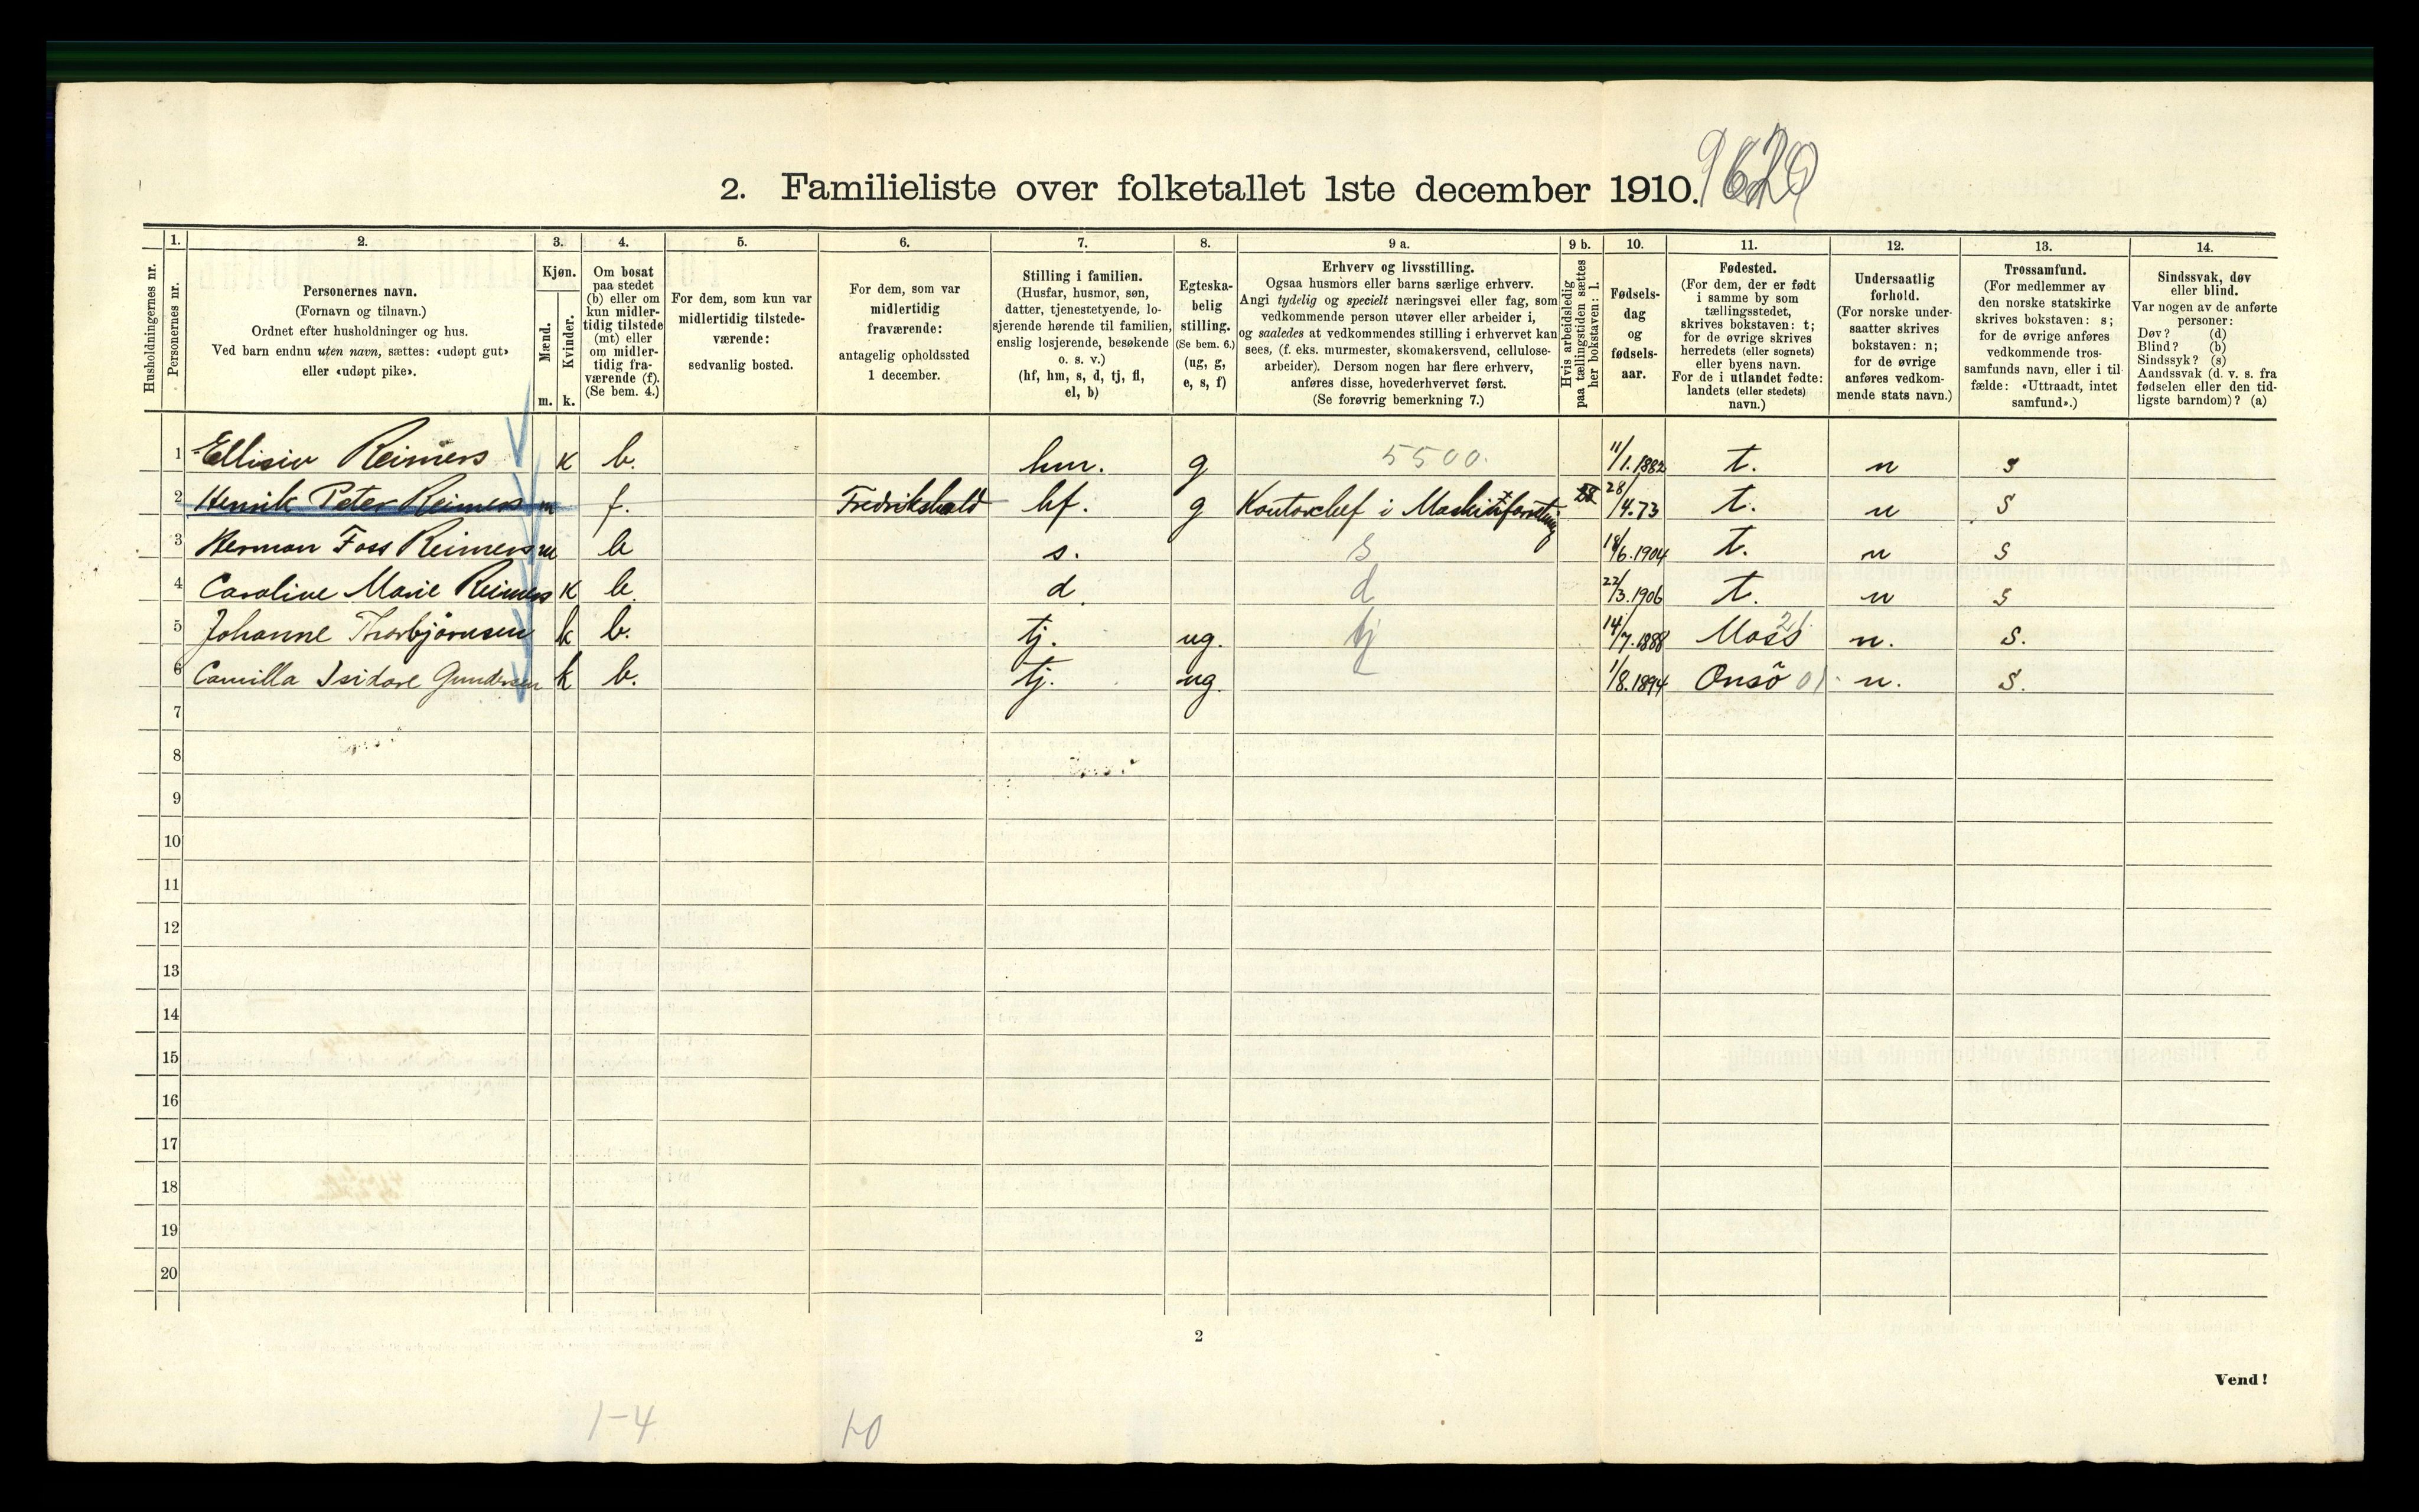 2. Familieliste over folketallet 1ste december 1910.
1. 2. 3. 4. 5. 6. 7. 8. 9 a. 9 b. 10. 11. 12. 13. 14.
Husholdningernes nr.
Personernes nr.
Personernes navn.
(Fornavn og tilnavn.)
Ordnet efter husholdninger og hus.
Ved barn endnu uten navn, sættes: «udøpt gut»
eller «udøpt pike».
Kjøn.
Mænd.
Kvinder.
m. k.
Om bosat
paa stedet
(b) eller om
kun midler-
tidig tilstede
(mt) eller
om midler-
tidig fra-
værende (f).
(Se bem. 4.)
For dem, som kun var
midlertidig tilstede-
værende:
sedvanlig bosted.
For dem, som var
midlertidig
fraværende:
antagelig opholdssted
1 december.
Stilling i familien.
(Husfar, husmor, søn,
datter, tjenestetyende, lo-
sjerende hørende til familien,
enslig losjerende, besøkende
o. s. v.)
(hf, hm, s, d, tj, fl,
el, b)
Egteska-
belig
stilling.
(Se bem. 6.)
(ug, g,
e, s, f)
Erhverv og livsstilling.
Ogsaa husmors eller barns særlige erhverv.
Angi tydelig og specielt næringsvei eller fag, som
vedkommende person utøver eller arbeider i,
og saaledes at vedkommendes stilling i erhvervet kan
sees, (f. eks. murmester, skomakersvend, cellulose-
arbeider). Dersom nogen har flere erhverv,
anføres disse, hovederhvervet først.
(Se forøvrig bemerkning 7.)
Hvis arbeidsledig
paa tællingstiden sættes
her bokstaven: l.
Fødsels-
dag
og
fødsels-
aar.
Fødested.
(For dem, der er født
i samme by som
tællingsstedet,
skrives bokstaven: t;
for de øvrige skrives
herredets (eller sognets)
eller byens navn.
For de i utlandet fødte:
landets (eller stedets)
navn.)
Undersaatlig
forhold.
(For norske under-
saatter skrives
bokstaven: n;
for de øvrige
anføres vedkom-
mende stats navn.)
Trossamfund.
(For medlemmer av
den norske statskirke
skrives bokstaven: s;
for de øvrige anføres
vedkommende tros-
samfunds navn, eller i til-
fælde: «Uttraadt, intet
samfund».)
Sindssvak, døv
eller blind.
Var nogen av de anførte
personer:
Døv? (d)
Blind? (b)
Sindssyk? (s)
Aandssvak (d. v. s. fra
fødselen eller den tid-
ligste barndom)? (a)
1 Ellisiv Reimers k b. hm. g 5500. 11/1.1882 t. n s
2 Henrik Peter Reimers m f. Fredrikshald hf. g Kontorchef i Maskinforretning 28/4.73 t. n s
3 Herman Foss Reimers m b s. s 18/6.1904 t. n s
4 Caroline Marie Reimers k b d. d 22/3.1906 t. n s
5 Johanne Thorbjørnsen k b. tj. ug. tj 14/7.1888 Moss n. s.
6 Camilla Isidore Gundersen k b. tj. ug. 1/8.1894 Onsö 01. n. s.
7
8
9
10
11
12
13
14
15
16
17
18
19
20
2
Vend!
1-4